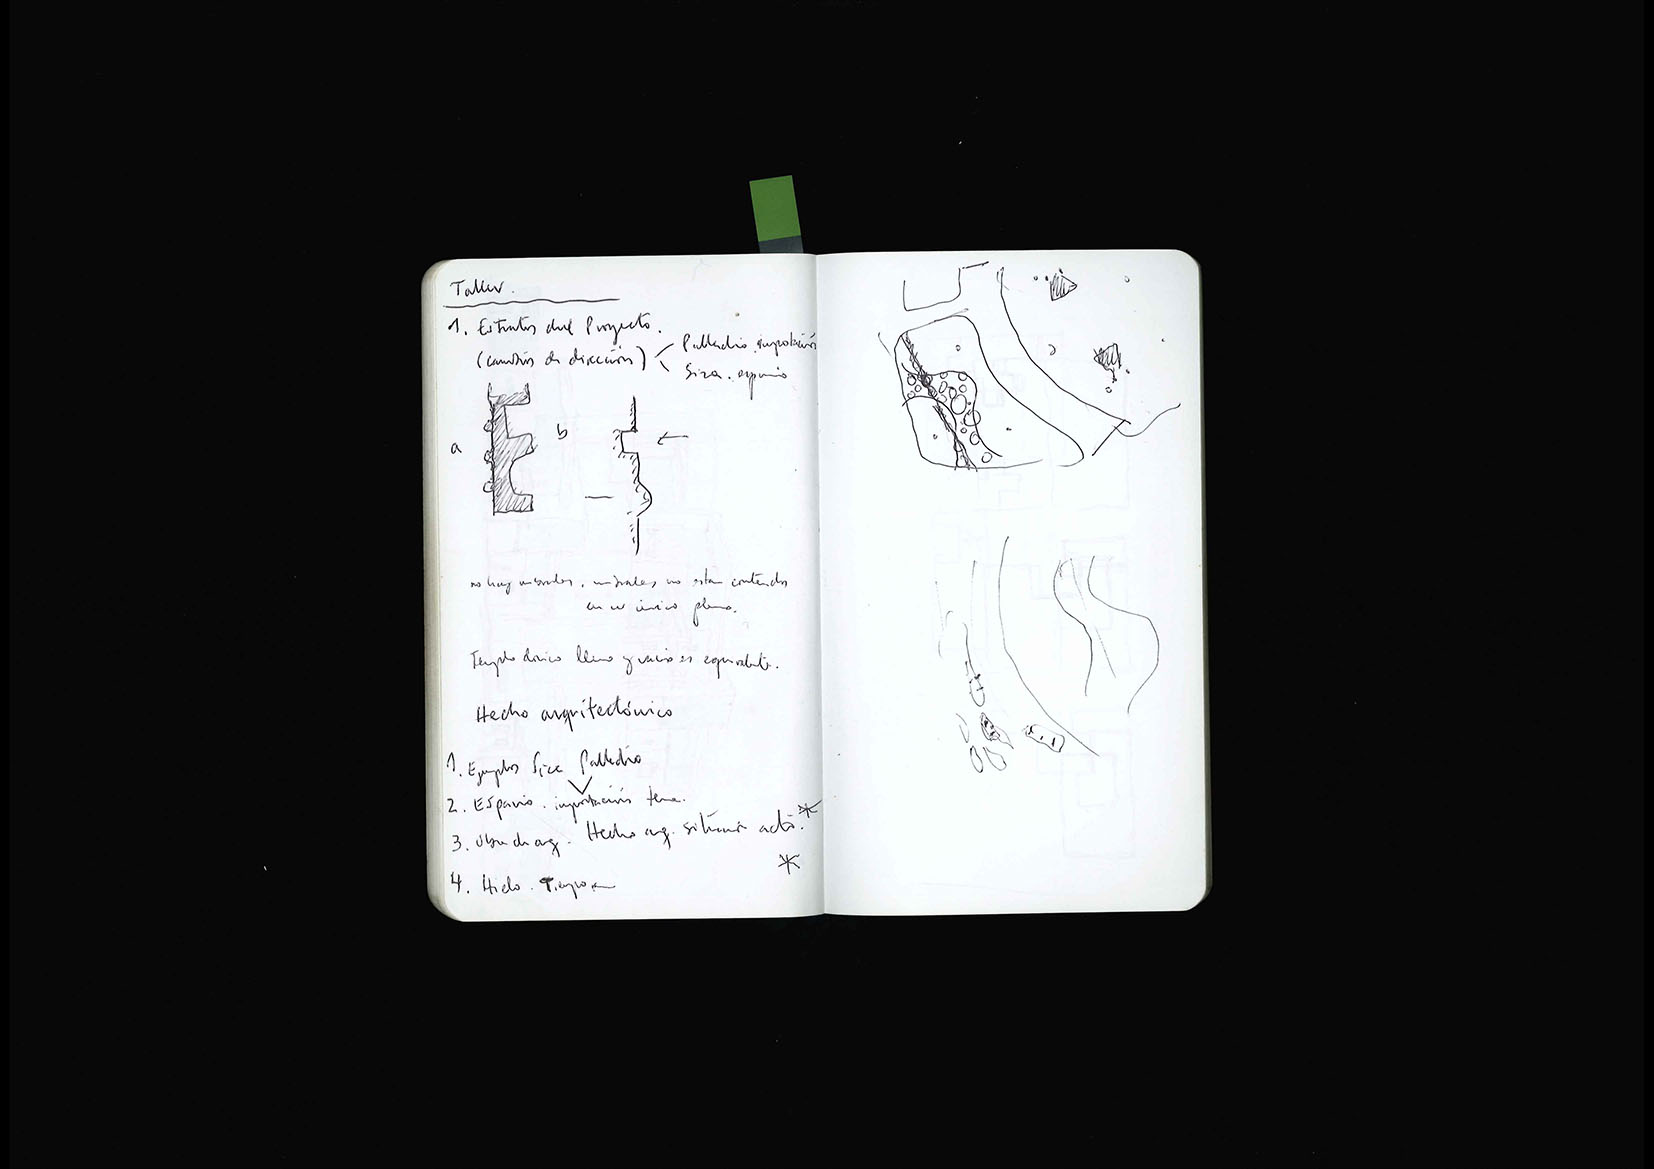 Taller.
1. Estratos del Proyecto.
(cambios de dirección)
Palladio. importación
Siza. espacio
a
b
no están contenidos
en un único plano.
Templo dórico lleno y vacío es equivalente.
Hecho arquitectónico
1. Ejemplos Siza Palladio
2. Espacio. importación tema.
3. obra de arq. Hecho arq. acto. *
*
4. Tiempo